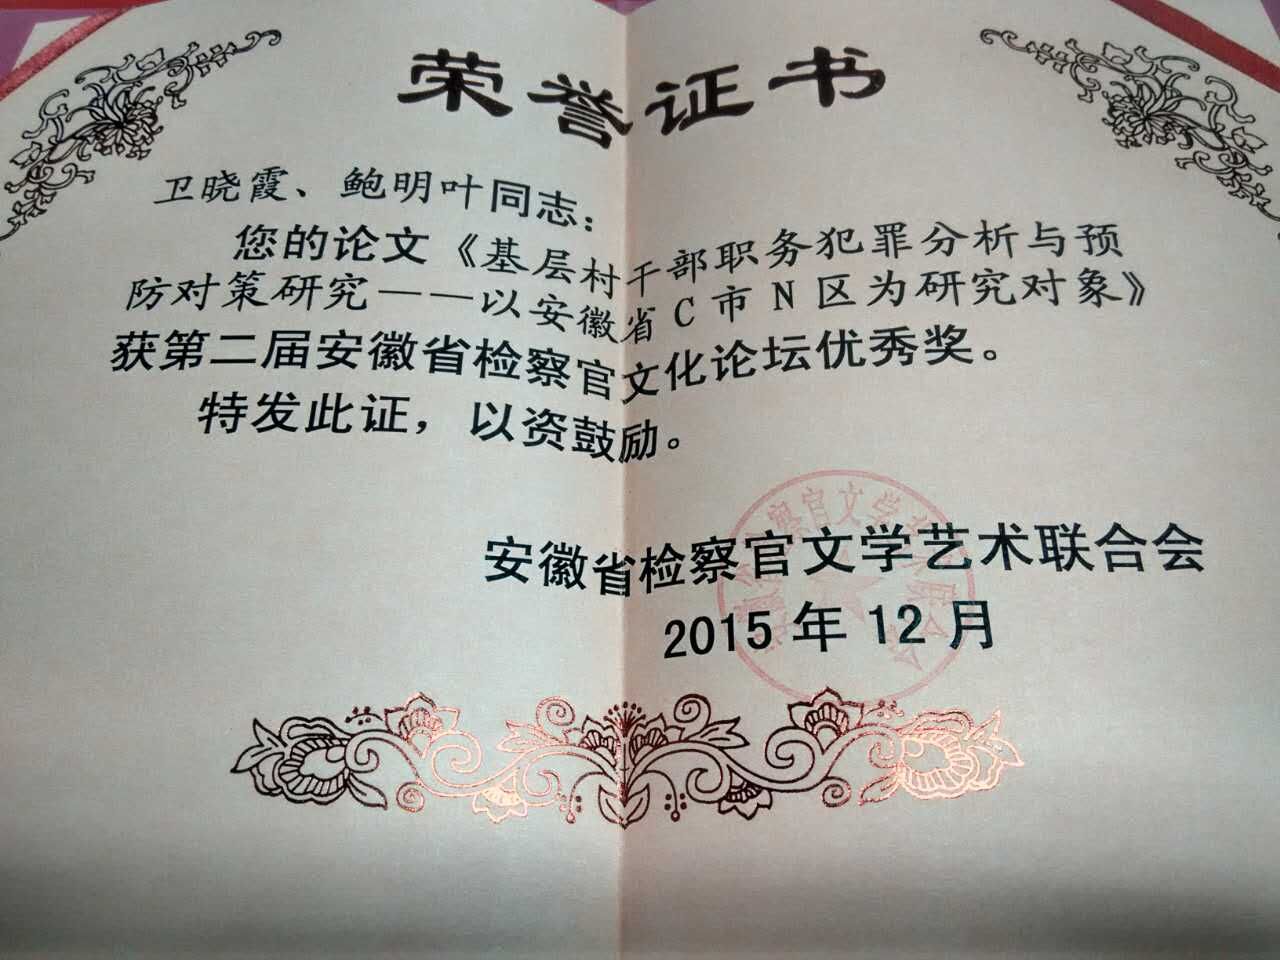 荣誉证书
卫晓霞、鲍明叶同志：
您的论文《基层村干部职务犯罪分析与预
防对策研究——以安徽省C市N区为研究对象》
获第二届安徽省检察官文化论坛优秀奖。
特发此证，以资鼓励。
安徽省检察官文学艺术联合会
2015年12月